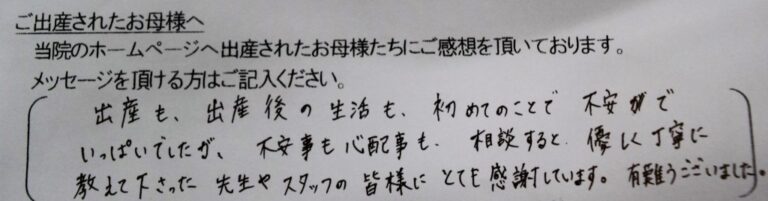 ご出産されたお母様へ
当院のホームページへ出産されたお母様たちにご感想を頂いております。
メッセージを頂ける方はご記入ください。
出産も、出産後の生活も、初めてのことで不安がで
いっぱいでしたが、不安事も心配事も、相談すると、優しく丁寧に
教えて下さった先生やスタッフの皆様にとても感謝しています。有難うございました。